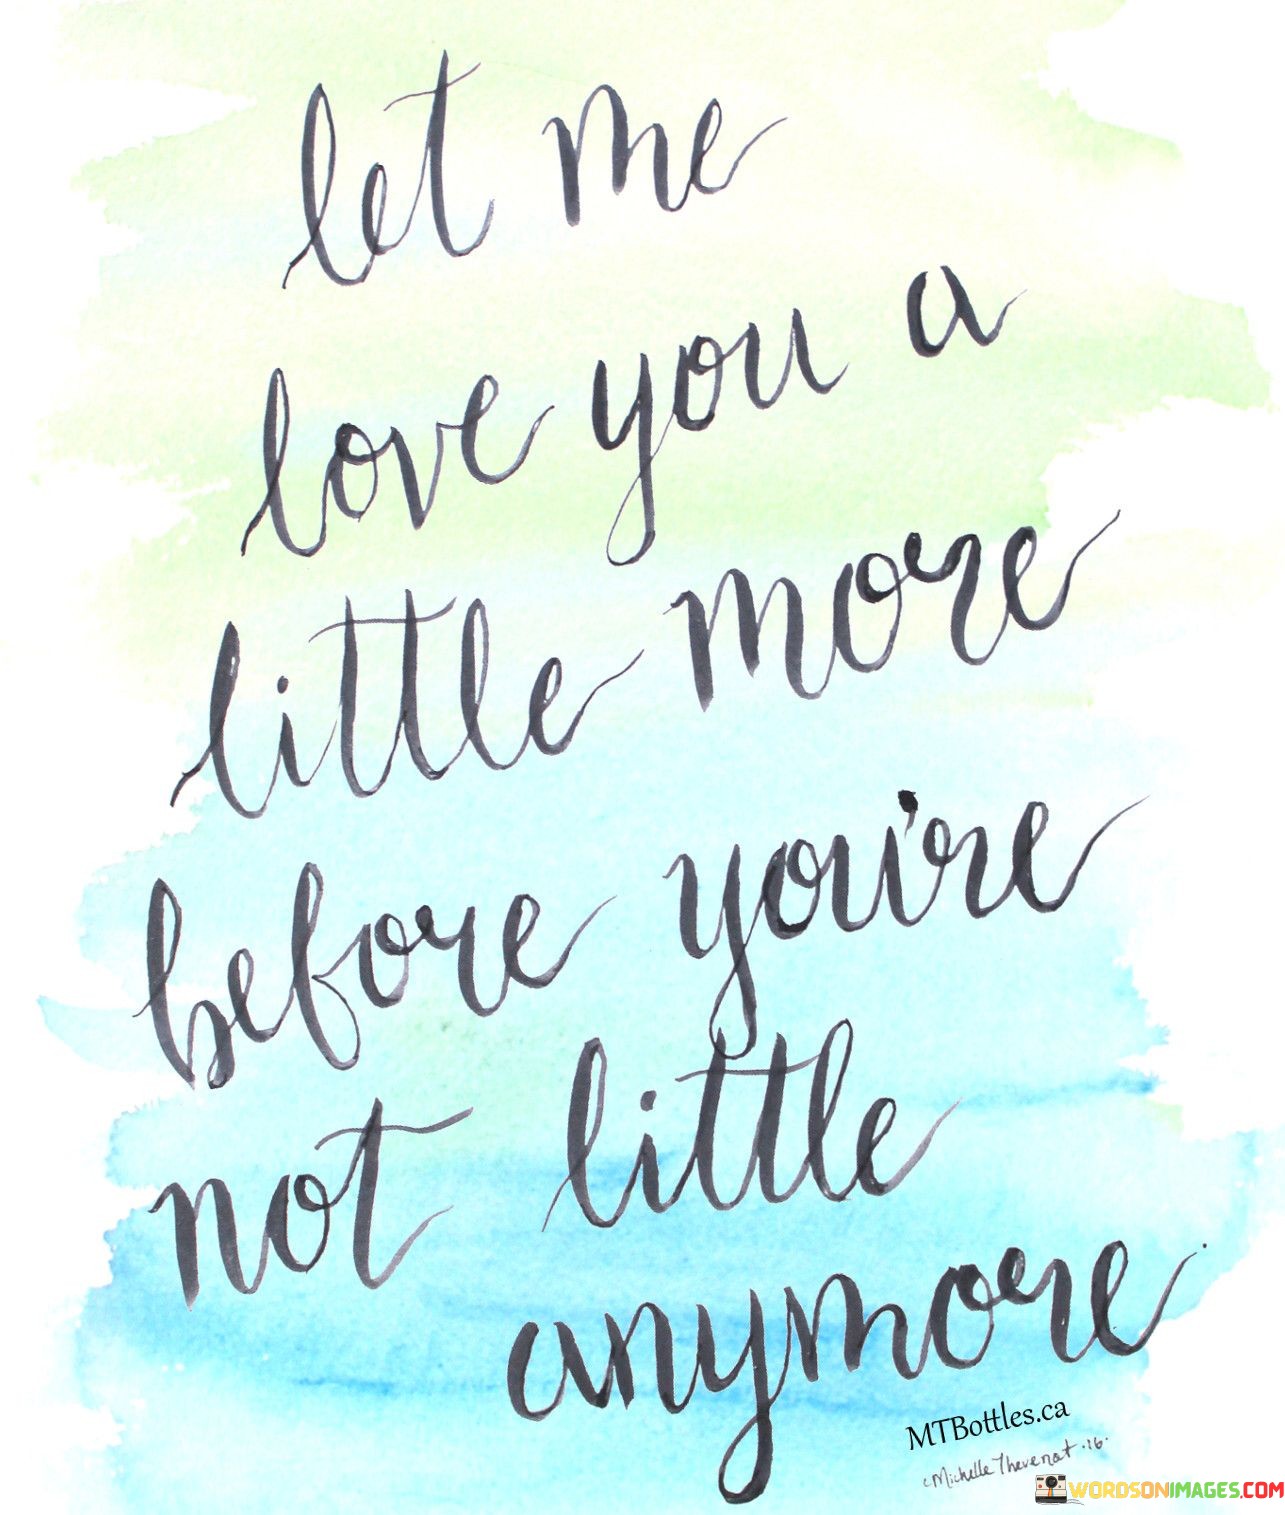 let me
love you a
little more
before you're
not little
anymore.
MTBottles.ca
Michelle Thevenot .16.
WORDSONIMAGES.COM